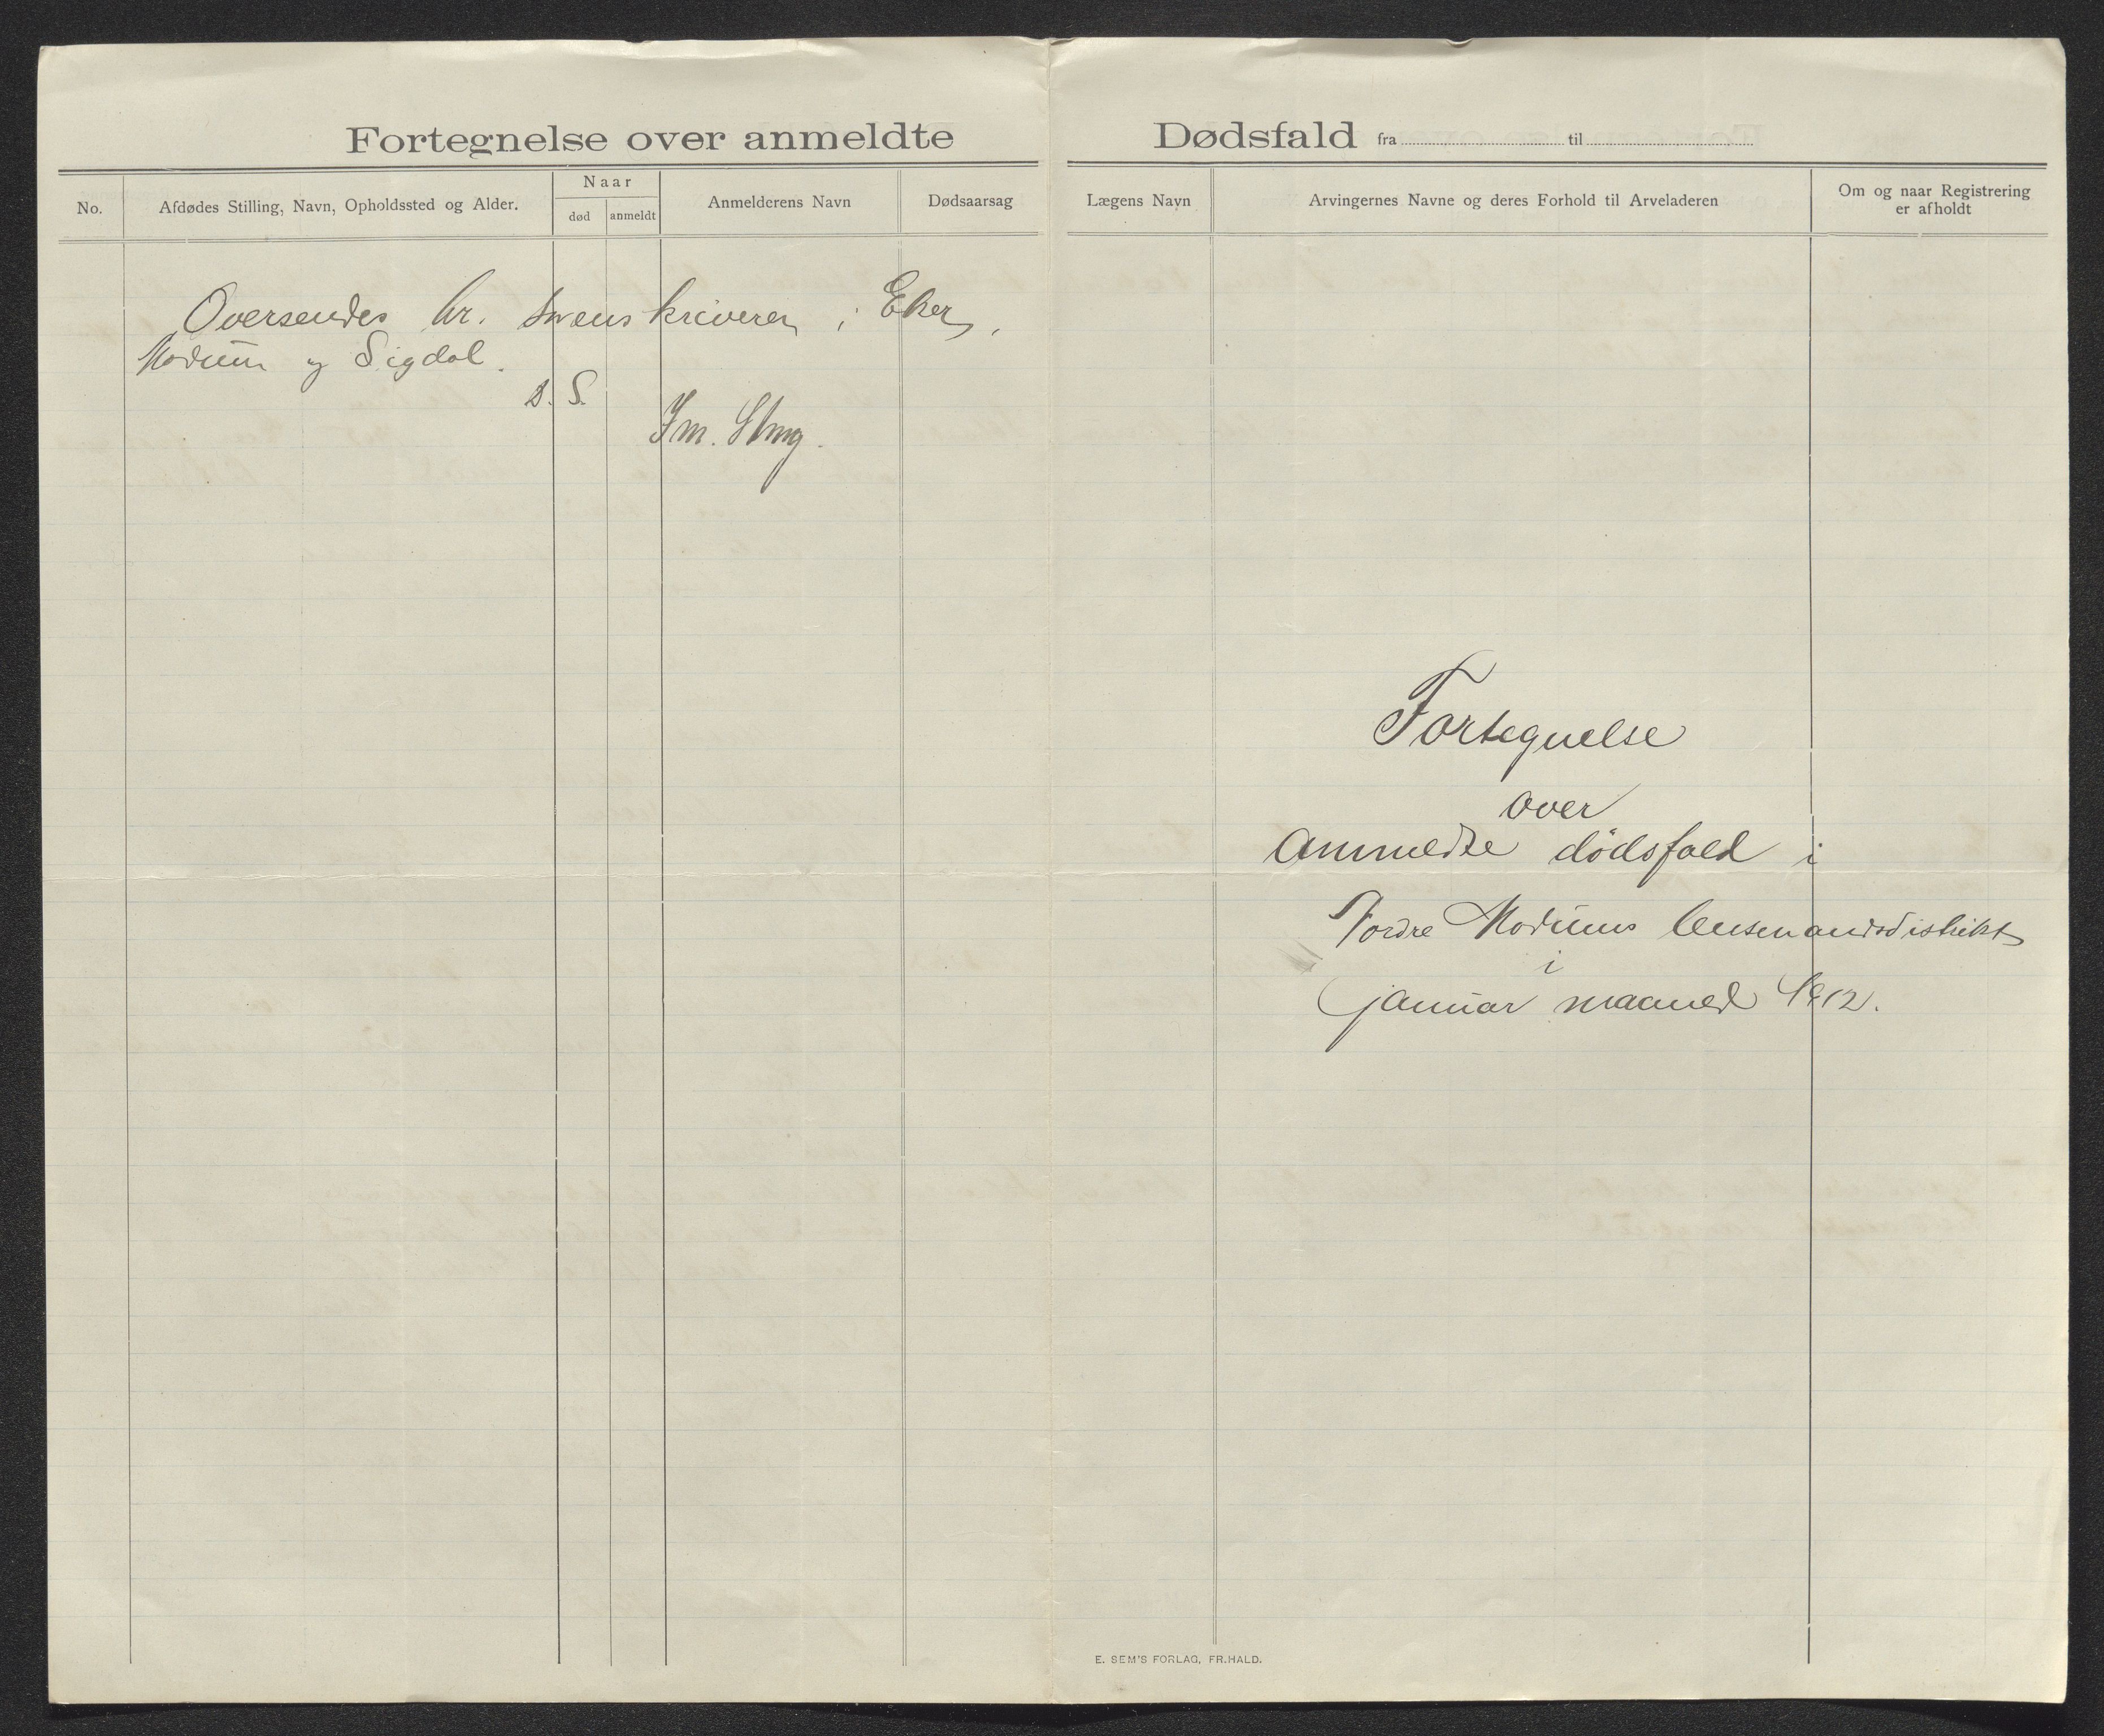 Fortegnelse over anmeldte Dødsfald fra til
No.
Afdødes Stilling, Navn, Opholdssted og Alder.
Naar
død
anmeldt
Anmelderens Navn
Dødsaarsag
Lægens Navn
Arvingernes Navne og deres Forhold til Arveladeren
Om og naar Registrering
er afholdt
Oversendes hr. sorenskriveren i Eker,
Modum og Sigdal.
D. S.
Fortegnelse
over
Anmeldte dødsfald i
Nordre Modums lensmandsdistrikt
i
januar maaned 1912.
E. SEM'S FORLAG, FR.HALD.